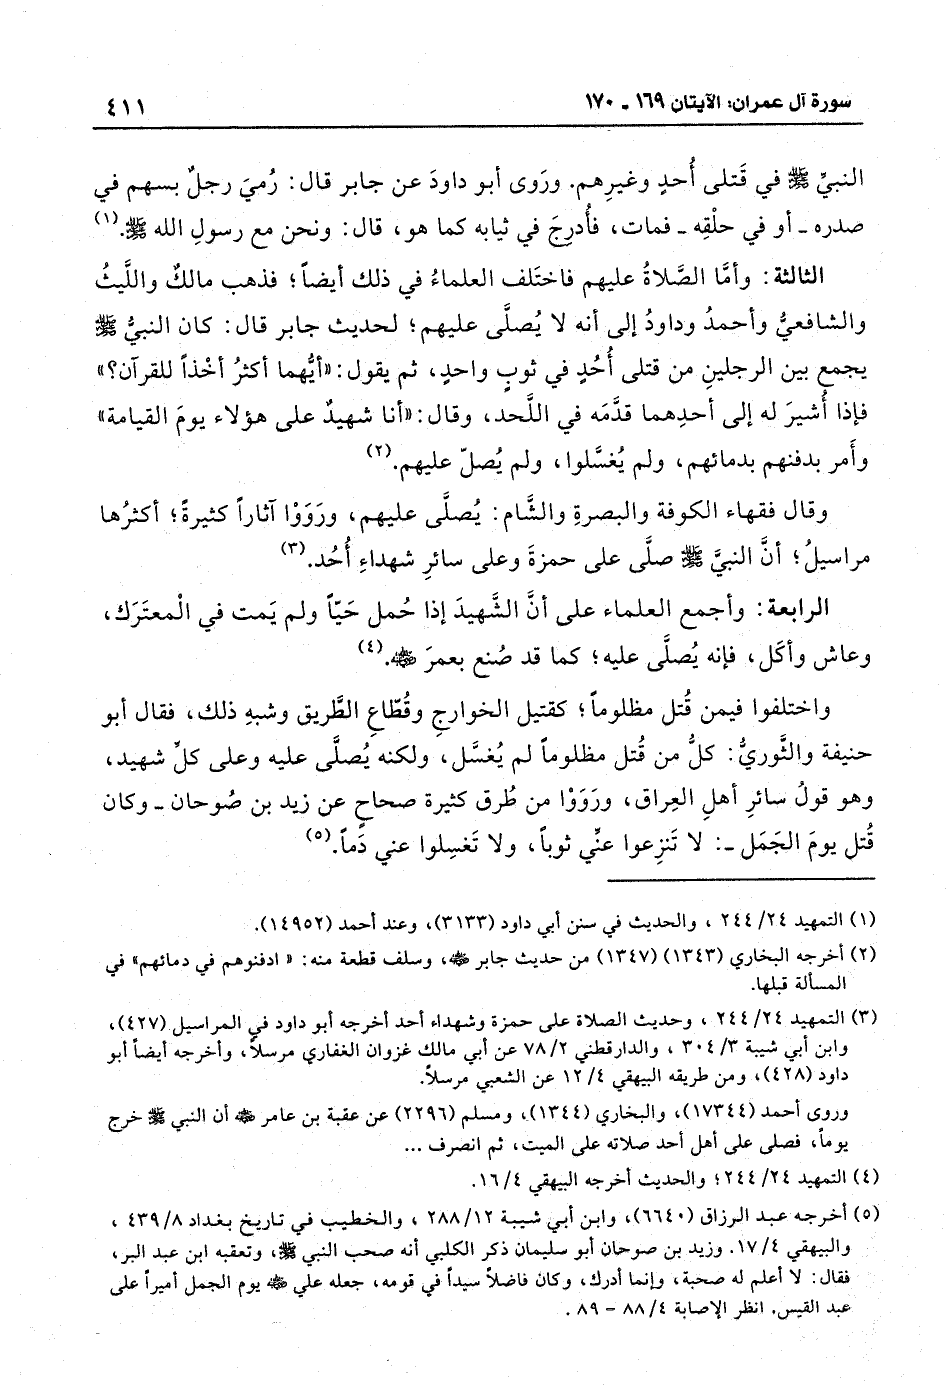 سورة آل عمران: الآيتان ١٦٩ ـ ١٧٠
٤١١
النبيِّ ﷺ في قَتلى أُحدٍ وغيرِهم. ورَوى أبو داودَ عن جابر قال: رُميَ رجلٌ بسهم في
صدره ـ أو في حلْقِه ـ فمات، فأُدرِجَ في ثيابه كما هو، قال: ونحن مع رسولِ الله ﷺ.(١)
الثالثة: وأمَّا الصَّلاةُ عليهم فاختَلف العلماءُ في ذلك أيضاً؛ فذهب مالكٌ واللَّيثُ
والشافعيُّ وأحمدُ وداودُ إلى أنه لا يُصلَّى عليهم؛ لحديث جابر قال: كان النبيُّ ﷺ
يجمع بين الرجلينِ من قتلى أُحُدٍ في ثوبٍ واحدٍ، ثم يقول: «أيُّهما أكثرُ أخْذاً للقرآن؟»
فإذا أُشيرَ له إلى أحدِهما قدَّمَه في اللَّحد، وقال: «أنا شهيدٌ على هؤلاء يومَ القيامة»
وأَمر بدفنهم بدمائهم، ولم يُغسَّلوا، ولم يُصلّ عليهم.(٢)
وقال فقهاء الكوفة والبصرةِ والشَّام: يُصلَّى عليهم، ورَوَوْا آثاراً كثيرةً؛ أكثرُها
مراسيلُ؛ أنَّ النبيَّ ﷺ صلَّى على حمزةَ وعلى سائرِ شهداءِ أُحُد.(٣)
الرابعة: وأجمع العلماء على أنَّ الشَّهيدَ إذا حُمل حَيّاً ولم يَمت في الْمعتَرَك،
وعاش وأكَل، فإنه يُصلَّى عليه؛ كما قد صُنع بعمرَ ﵁.(٤)
واختلفوا فيمن قُتل مظلوماً؛ كقتيل الخوارجِ وقُطّاعِ الطَّريق وشبهِ ذلك، فقال أبو
حنيفة والثَّوريُّ: كلُّ من قُتل مظلوماً لم يُغسَّل، ولكنه يُصلَّى عليه وعلى كلِّ شهيد،
وهو قولُ سائرِ أهلِ العِراق، ورَوَوْا من طُرق كثيرة صحاحٍ عن زيد بن صُوحان ـ وكان
قُتل يومَ الجَمَل ـ: لا تَنزِعوا عنِّي ثوباً، ولا تَغسِلوا عني دَماً.(٥)
(١) التمهيد ٢٤/ ٢٤٤ ، والحديث في سنن أبي داود (٣١٣٣)، وعند أحمد (١٤٩٥٢).
(٢) أخرجه البخاري (١٣٤٣) (١٣٤٧) من حديث جابر ﵁، وسلف قطعة منه: « ادفنوهم في دمائهم» في
المسألة قبلها.
(٣) التمهيد ٢٤/ ٢٤٤ ، وحديث الصلاة على حمزة وشهداء أحد أخرجه أبو داود في المراسيل (٤٢٧)،
وابن أبي شيبة ٣/ ٣٠٤ ، والدارقطني ٢/ ٧٨ عن أبي مالك غزوان الغفاري مرسلاً، وأخرجه أيضاً أبو
داود (٤٢٨)، ومن طريقه البيهقي ٤/ ١٢ عن الشعبي مرسلاً.
وروى أحمد (١٧٣٤٤)، والبخاري (١٣٤٤)، ومسلم (٢٢٩٦) عن عقبة بن عامر ﵁ أن النبي ﷺ خرج
يوماً، فصلى على أهل أحد صلاته على الميت، ثم انصرف ...
(٤) التمهيد ٢٤/ ٢٤٤؛ والحديث أخرجه البيهقي ٤/ ١٦.
(٥) أخرجه عبد الرزاق (٦٦٤٠)، وابن أبي شيبة ١٢/ ٢٨٨ ، والخطيب في تاريخ بغداد ٨/ ٤٣٩ ،
والبيهقي ٤/ ١٧. وزيد بن صوحان أبو سليمان ذكر الكلبي أنه صحب النبي ﷺ، وتعقبه ابن عبد البر،
فقال: لا أعلم له صحبة، وإنما أدرك، وكان فاضلاً سيداً في قومه، جعله علي ﵁ يوم الجمل أميراً على
عبد القيس. انظر الإصابة ٤/ ٨٨ - ٨٩ .